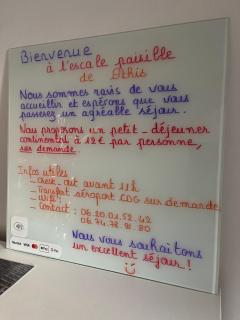 Bienvenue
à l'escale paisible
de Othis
Nous sommes ravis de vous
accueillir et espérons que vous
passerez un agréable séjour.
Nous proposons un petit-déjeuner
continental à 12€ par personne,
sur demande.
Infos utiles
- Check-out avant 11h
- Transfert aéroport CDG sur demande
- Wifi :
- Contact : 06.20.04.52.42
06.74.78.91.80
Nous vous souhaitons
un excellent séjour !